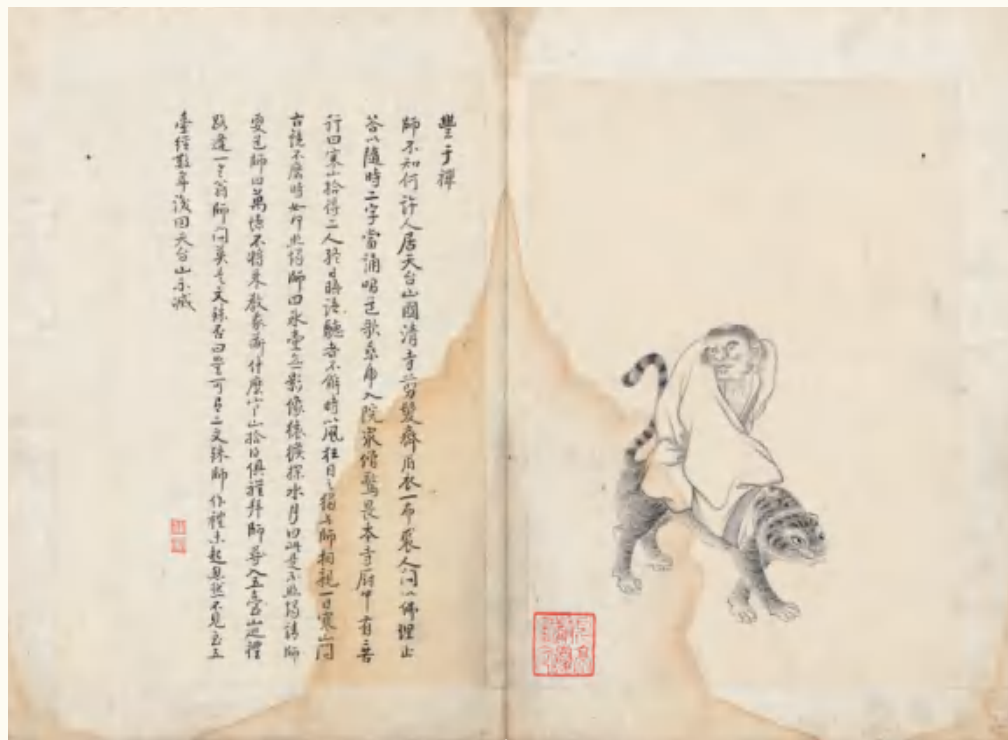 豐于禪
師不知何許人居天台山國清寺剪髮齊眉衣一布裘人問以佛理止
答以隨時二字當誦唱道歌乘虎入院眾僧驚畏本寺厨中有二苦
行曰寒山拾得二人終日晤語聽者不解時以風狂目之獨与師相親一日寒山問
古鏡不磨時如何照燭師曰冰壺無影像猿猴探水月曰此是不照燭請師
更道師曰萬德不將來教我道什麼寒山拾得俱禮拜師尋入五臺山巡禮
路逢一老翁師問莫是文殊否曰豈可有二文殊師作禮未起忽然不見至五
臺經數年後回天台山示滅